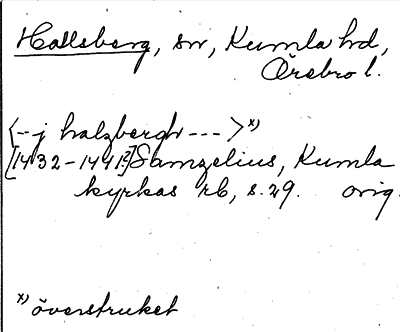 Hallsberg, sn, Kumla hd,
Örebro l.
<--j halzbergh --->x)
[1432-1441?] Samzelius, Kumla
kyrkas rb, s. 29. orig.
x) överstruket